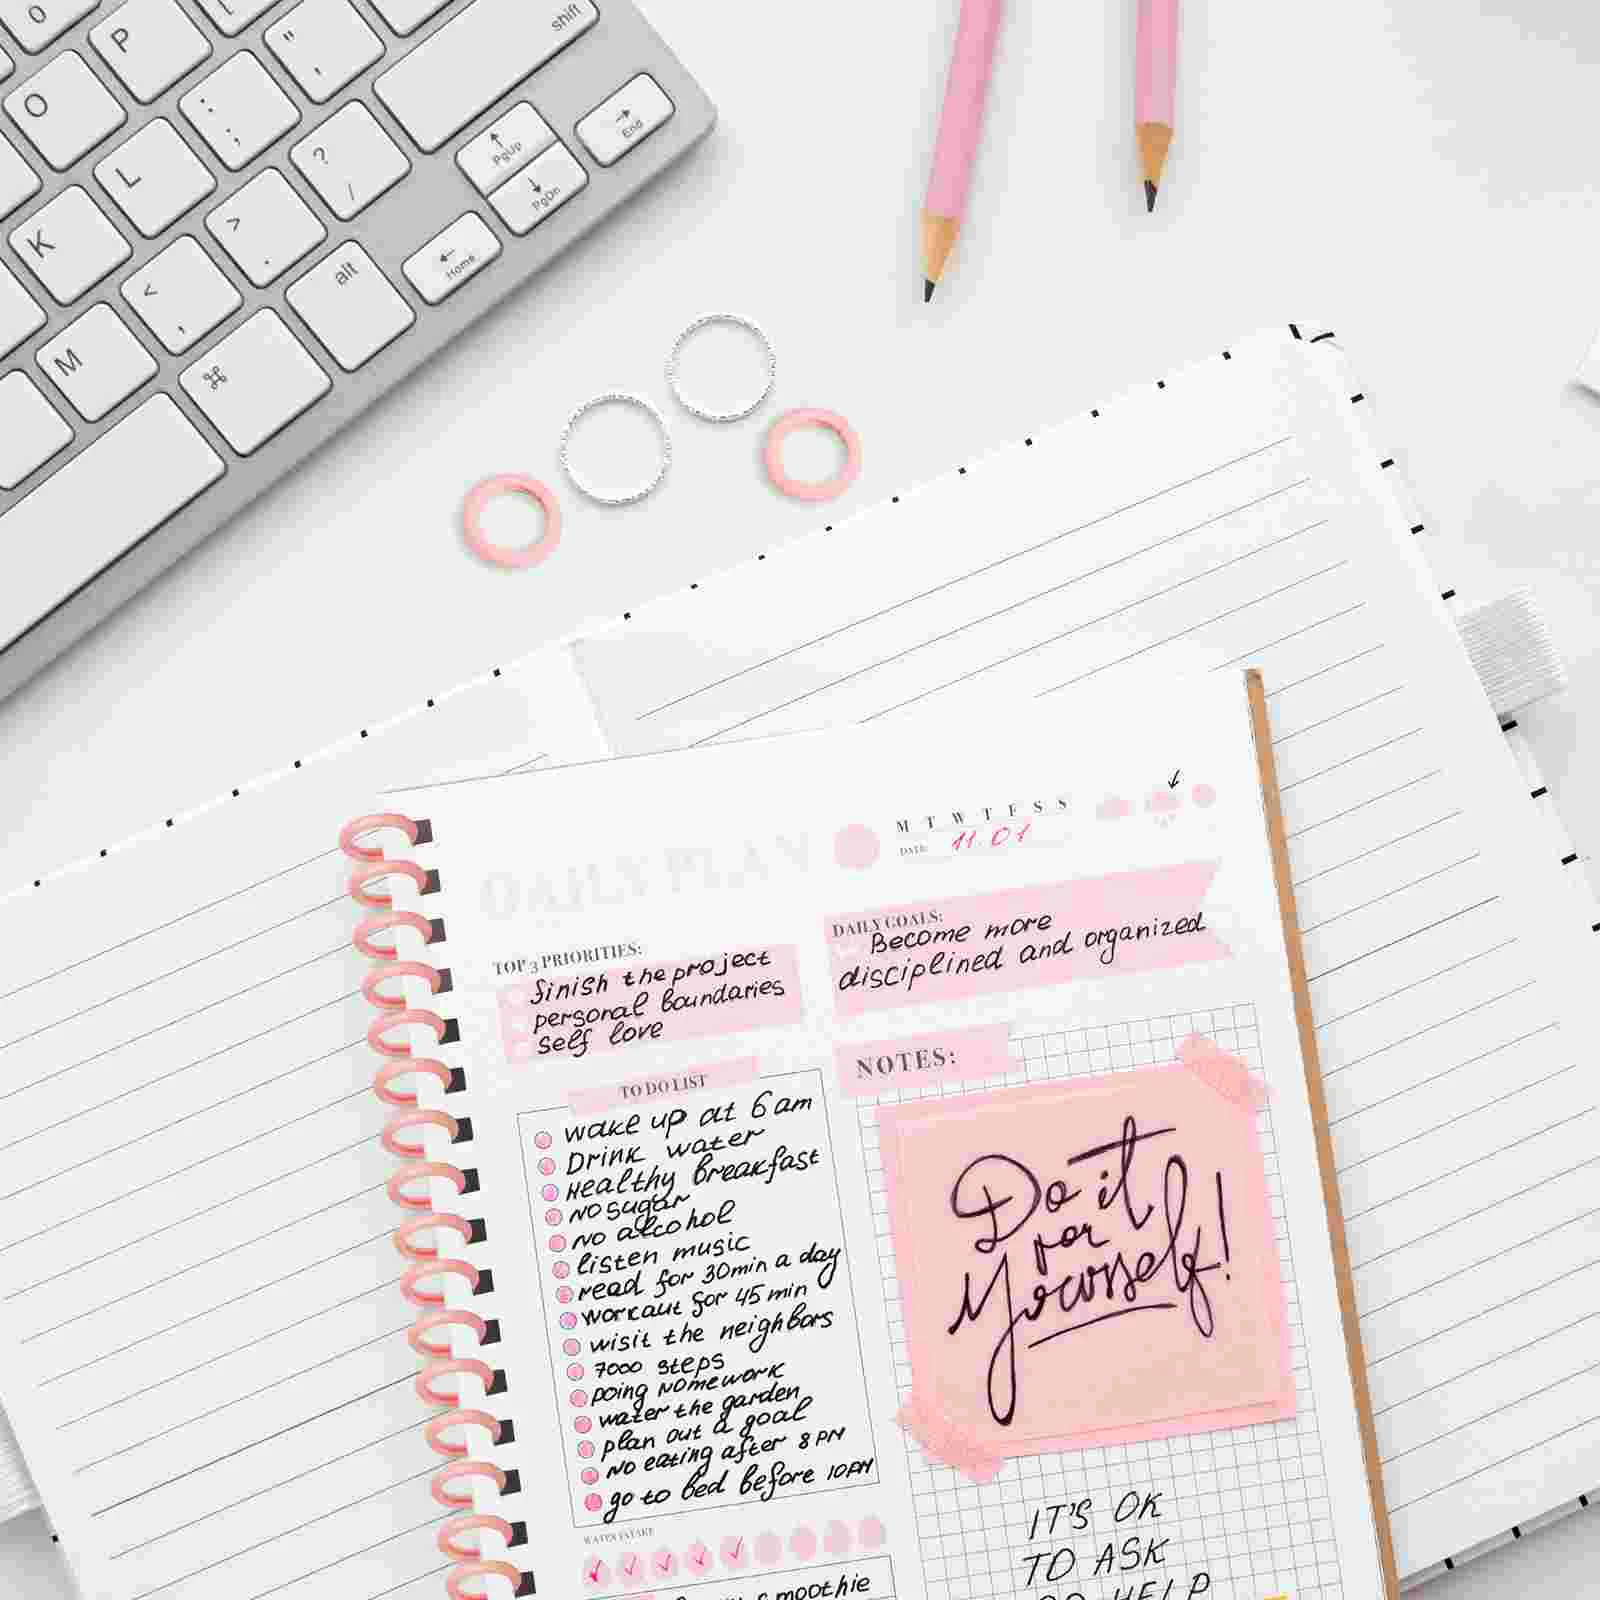 O
P
shift
"
'
O
:
;
PgUp
End
L
?
/
PgDn
K
>
.
Home
alt
<
,
M
⌘
DAILY PLAN
M T W T F S S
DATE: 11.01
TOP 3 PRIORITIES:
finish the project
personal boundaries
self love
DAILY GOALS:
Become more
disciplined and organized
TO DO LIST
wake up at 6 am
Drink water
Healthy breakfast
no sugar
no alcohol
listen music
read for 30min a day
workout for 45 min
wisit the neighbors
7000 steps
Doing homework
water the garden
plan out a goal
no eating after 8 PM
go to bed before 10PM
WATER INTAKE
smoothie
NOTES:
Do it
for
Yourself!
IT'S OK
TO ASK
HELP